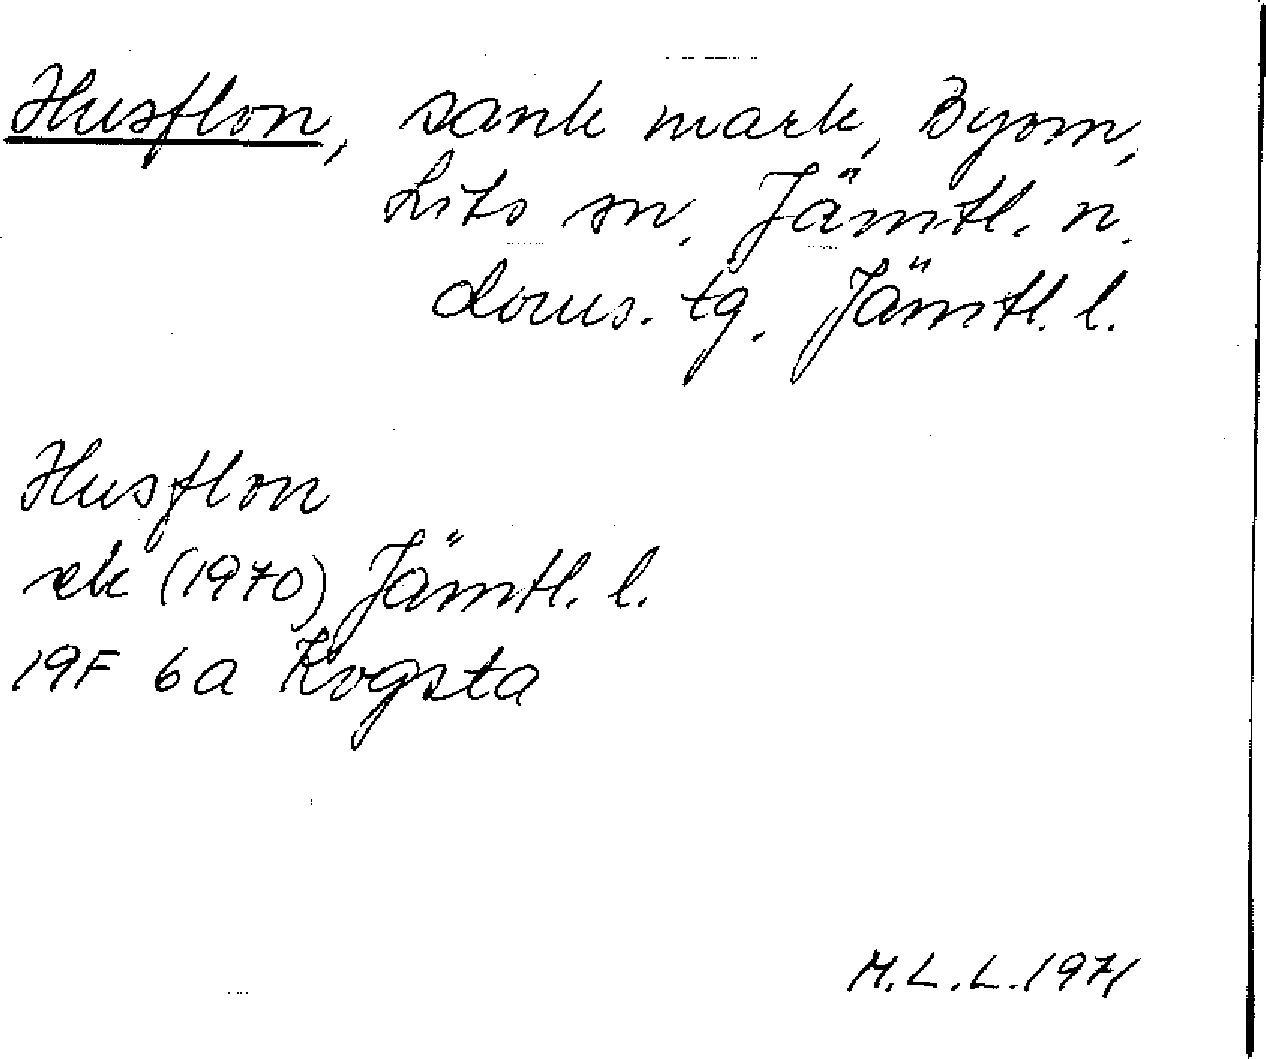 Husflon, sank mark, Byom,
Lits sn. Jämtl. n.
doms. tg. Jämtl. l.
Husflon
ek (1970) Jämtl. l.
19F 6a Kogsta
M.L.L. 1971